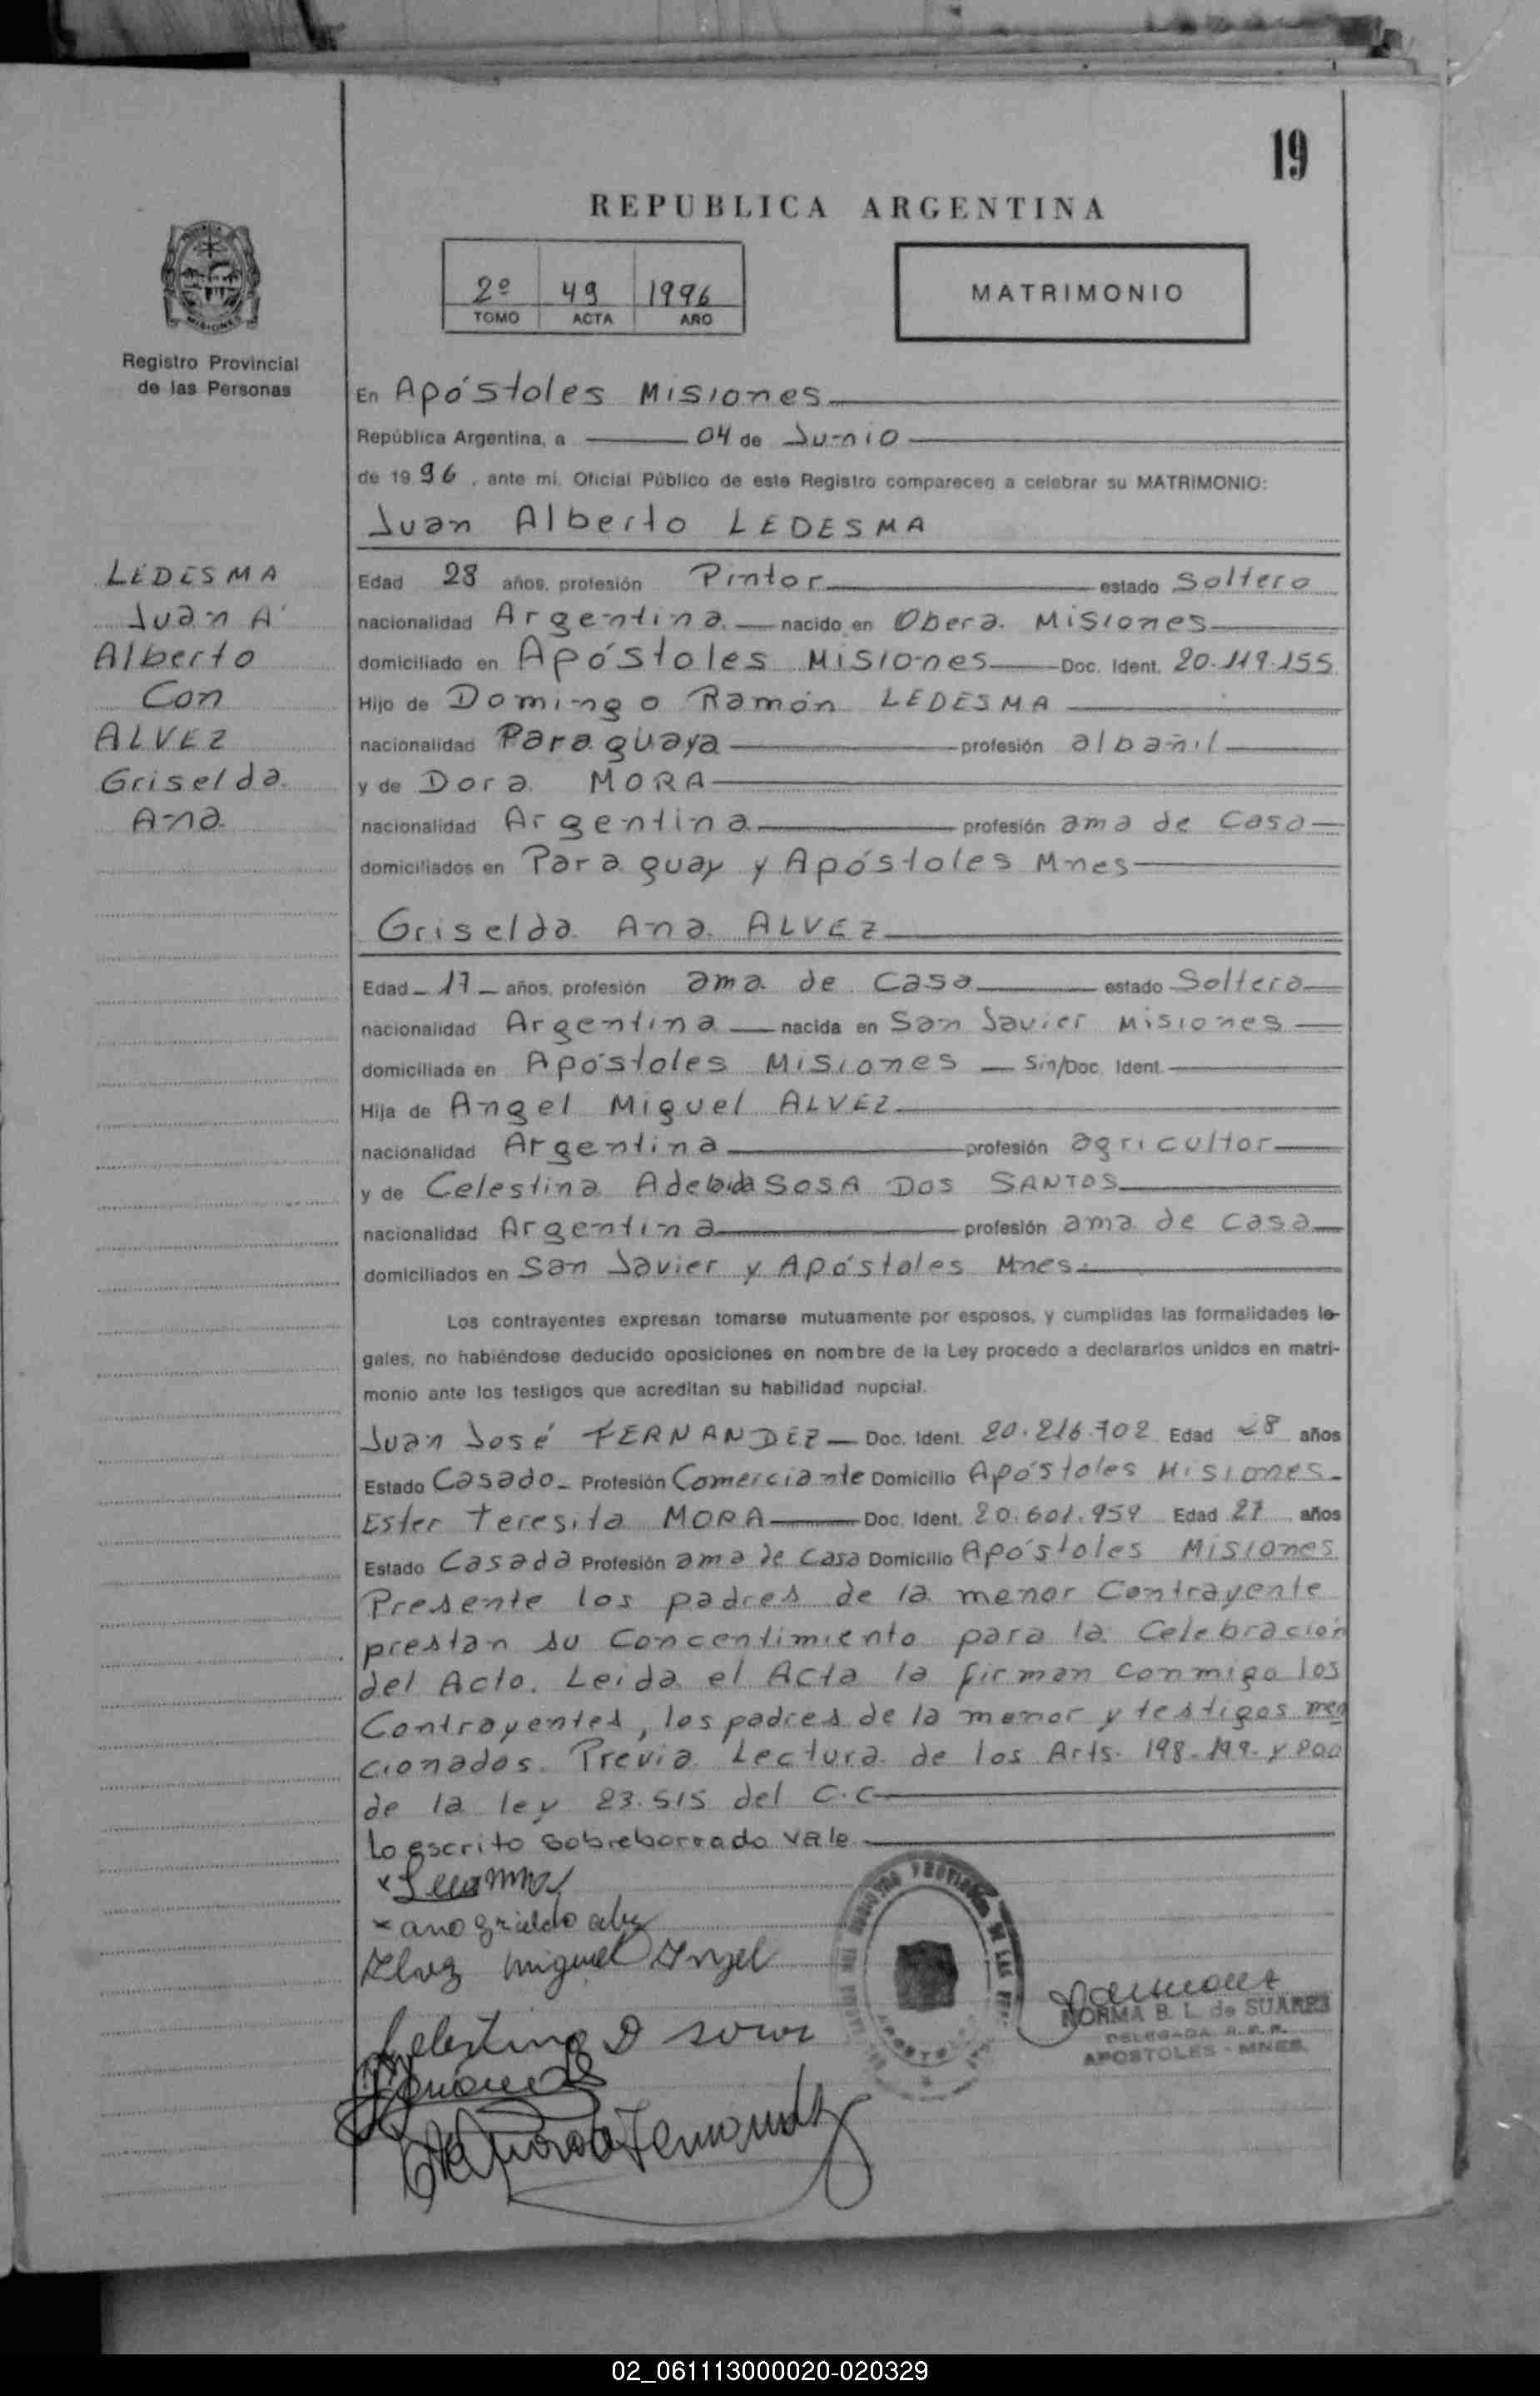 19
REPUBLICA ARGENTINA
2º 49 1996
TOMO ACTA AÑO
MATRIMONIO
MISIONES
Registro Provincial
de las Personas
En Apóstoles Misiones
República Argentina, a 04 de Junio
de 1996, ante mi, Oficial Público de este Registro comparecen a celebrar su MATRIMONIO:
Juan Alberto LEDESMA
LEDESMA
Juan A
Alberto
Con
ALVEZ
Griselda
Ana
Edad 28 años, profesión Pintor estado Soltero
nacionalidad Argentina nacido en Obera Misiones
domiciliado en Apóstoles Misiones Doc. Ident. 20.119.155
Hijo de Domingo Ramón LEDESMA
nacionalidad Paraguaya profesión albañil
y de Dora MORA
nacionalidad Argentina profesión ama de Casa
domiciliados en Paraguay y Apóstoles Mnes
Griselda Ana ALVEZ
Edad 17 años, profesión ama de Casa estado Soltera
nacionalidad Argentina nacida en San Javier Misiones
domiciliada en Apóstoles Misiones Sin/Doc. Ident.
Hija de Angel Miguel ALVEZ
nacionalidad Argentina profesión agricultor
y de Celestina Adelaida SOSA DOS SANTOS
nacionalidad Argentina profesión ama de casa
domiciliados en San Javier y Apóstoles Mnes.
Los contrayentes expresan tomarse mutuamente por esposos, y cumplidas las formalidades le-
gales, no habiéndose deducido oposiciones en nombre de la Ley procedo a declararlos unidos en matri-
monio ante los testigos que acreditan su habilidad nupcial.
Juan José FERNANDEZ Doc. Ident. 20.216.702 Edad 28 años
Estado Casado Profesión Comerciante Domicilio Apóstoles Misiones
Ester Teresita MORA Doc. Ident. 20.601.959 Edad 27 años
Estado Casada Profesión ama de Casa Domicilio Apóstoles Misiones
Presente los padres de la menor Contrayente
prestan su Concentimiento para la Celebración
del Acto. Leida el Acta la firman conmigo los
Contrayentes, los padres de la menor y testigos men
cionados. Previa Lectura de los Arts. 198-199- y 200
de la ley 23.515 del C.C
Lo escrito sobreborrado vale
Alvez Miguel Angel
NORMA B. L. de SUAREZ
DELEGADA R.P.P.
APOSTOLES - MNES.
02_061113000020-020329